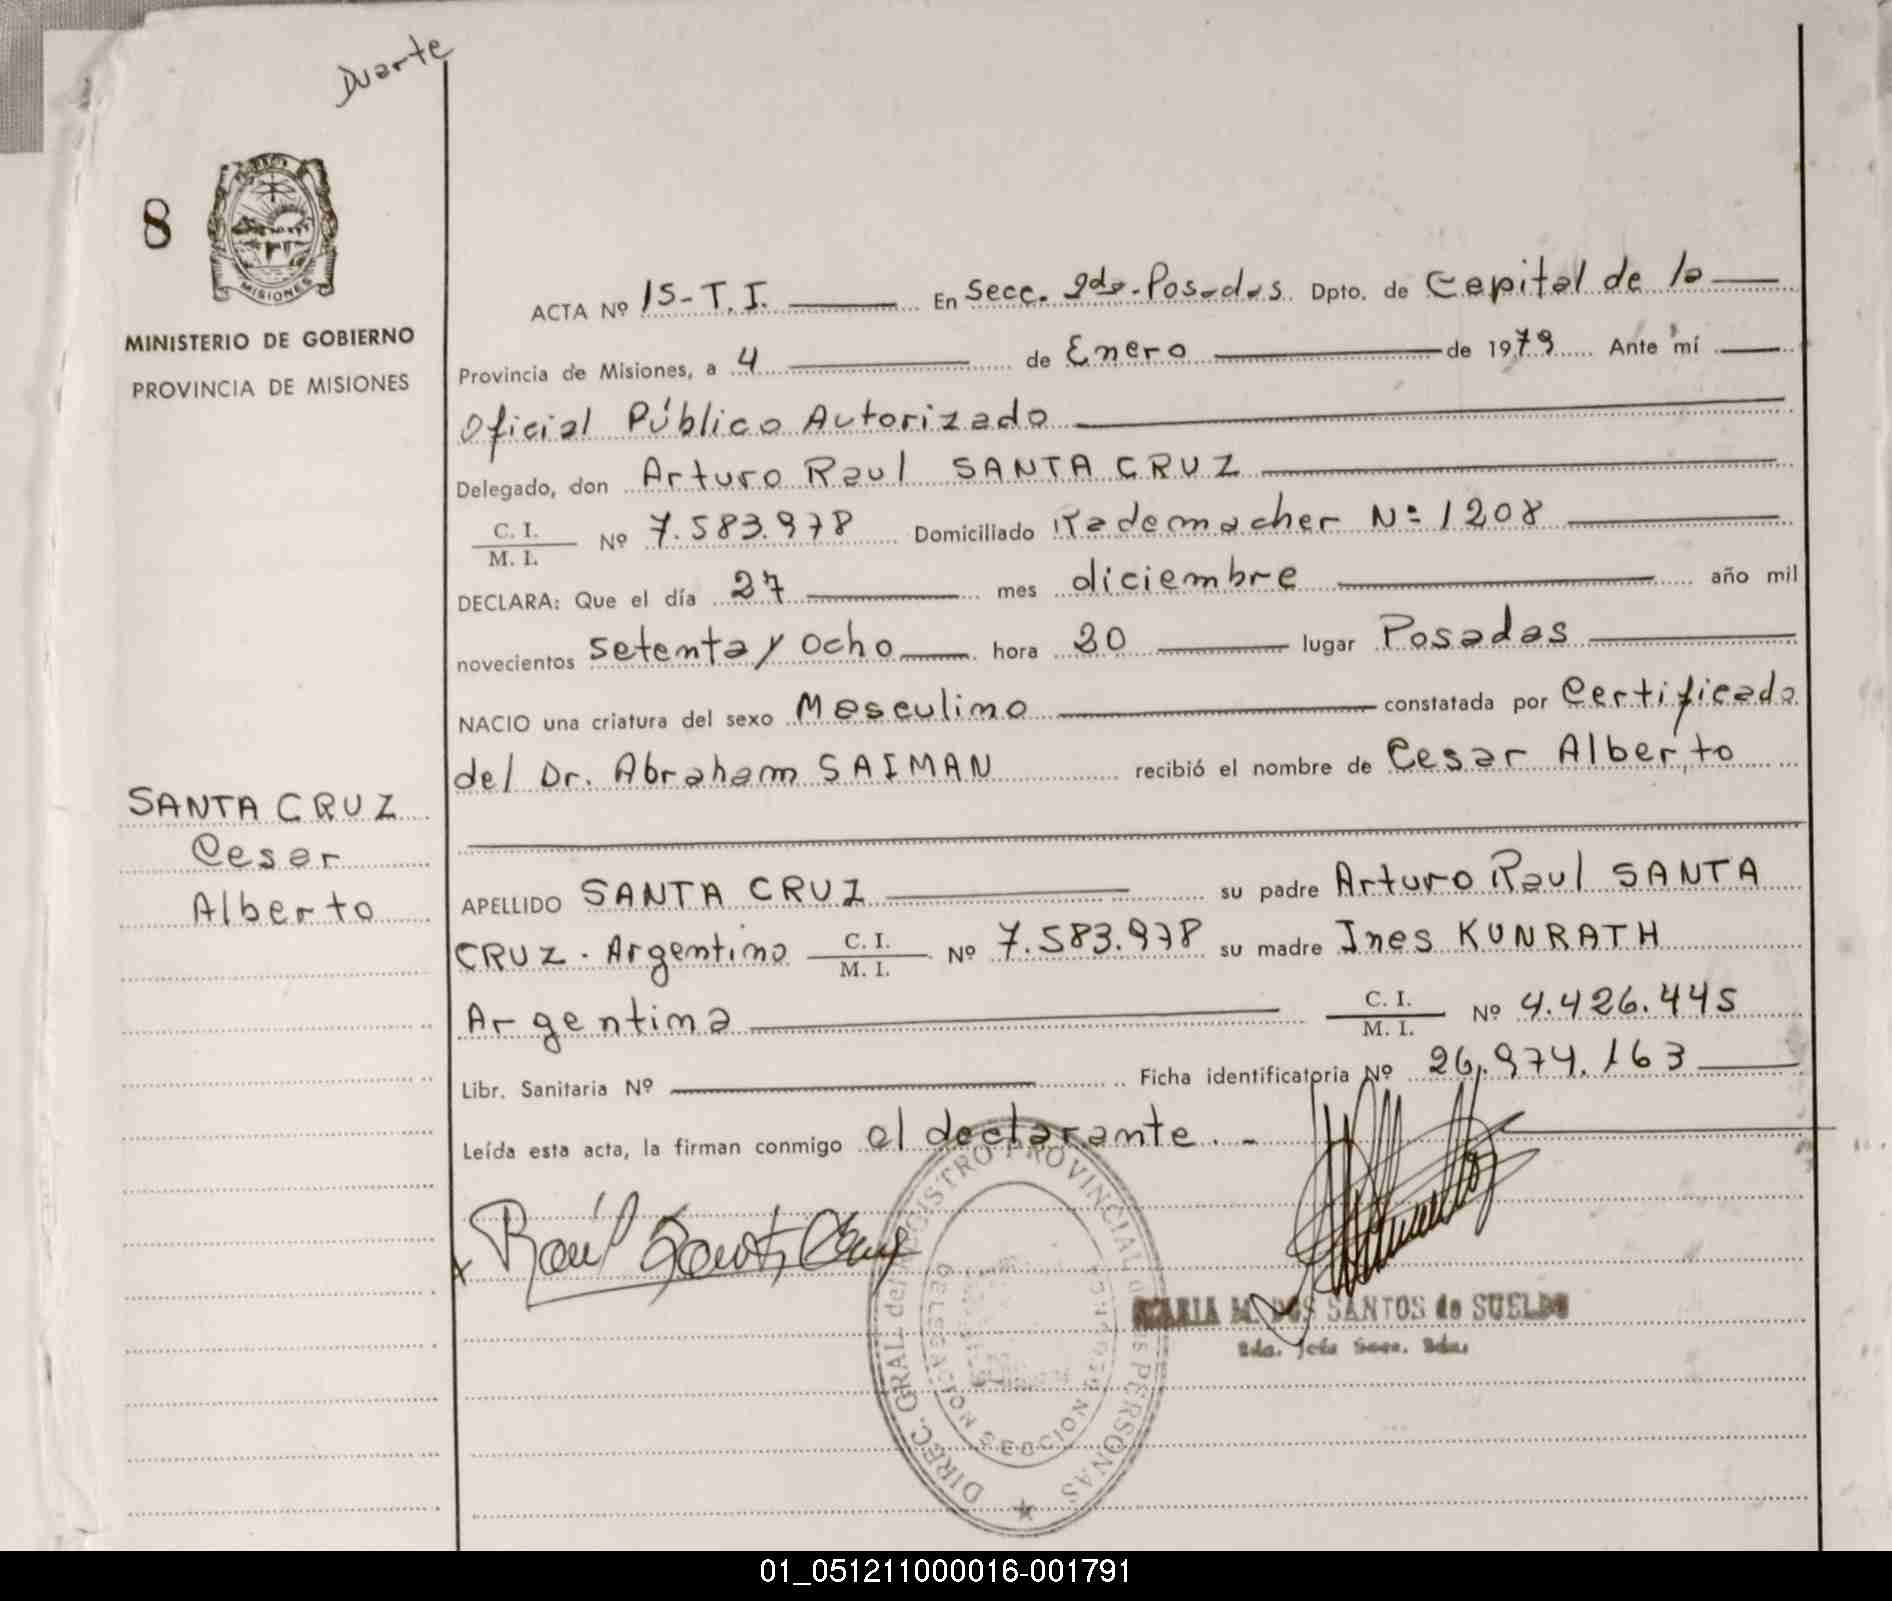 Duarte
8
MISIONES
MINISTERIO DE GOBIERNO
PROVINCIA DE MISIONES
ACTA Nº 15-T.I. En Secc. 2da-Posadas Dpto. de Capital de la
Provincia de Misiones, a 4 de Enero de 1979 Ante mí
Oficial Público Autorizado
Delegado, don Arturo Raul SANTA CRUZ
C. I.
M. I. Nº 7.583.978 Domiciliado Rademacher Nº 1208
DECLARA: Que el día 27 mes diciembre año mil
novecientos setenta y ocho hora 20 lugar Posadas
NACIO una criatura del sexo Masculino constatada por Certificado
del Dr. Abraham SAIMAN recibió el nombre de Cesar Alberto
SANTA CRUZ
Cesar
Alberto
APELLIDO SANTA CRUZ su padre Arturo Raul SANTA
CRUZ - Argentino C. I. M. I. Nº 7.583.978 su madre Ines KUNRATH
Argentina C. I. M. I. Nº 4.426.445
Libr. Sanitaria Nº Ficha identificatoria Nº 26.974.163
Leída esta acta, la firman conmigo el declarante.-
x Raúl Santa Cruz
DIREC. GRAL del REGISTRO PROVINCIAL de las PERSONAS
DELEGACION SECCION
MARIA M. DOS SANTOS de SUELDO
2da. Jefa Secc. 2da.
01_051211000016-001791